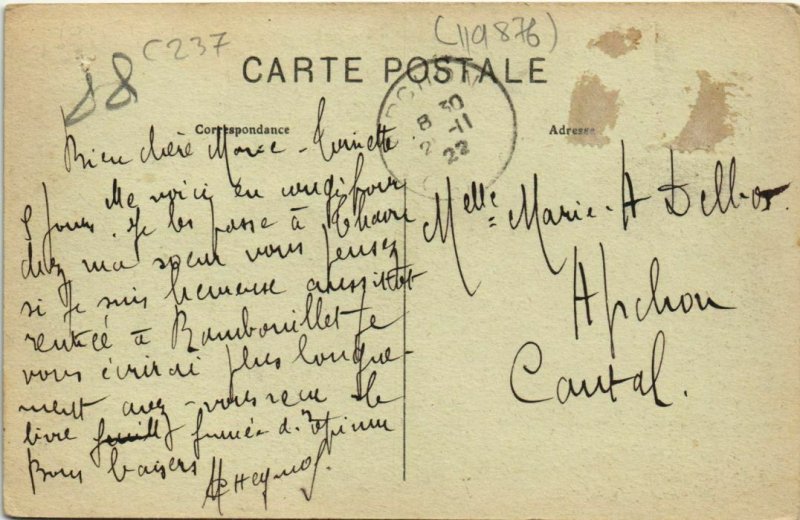 C237
(119876)
CARTE POSTALE
Correspondance
Adresse
8 30
2 -11
22
Bien chère Marie-Toinette
Me voici en congé pour
5 jours. Je les passe à
chez ma sœur vous pensez
si je suis heureuse aussitôt
rentrée à Rambouillet je
vous écrirai plus longue-
ment avez-vous reçu le
livre fumée d'
Bons baisers
Melle Marie-A Delbos
Apchon
Cantal.